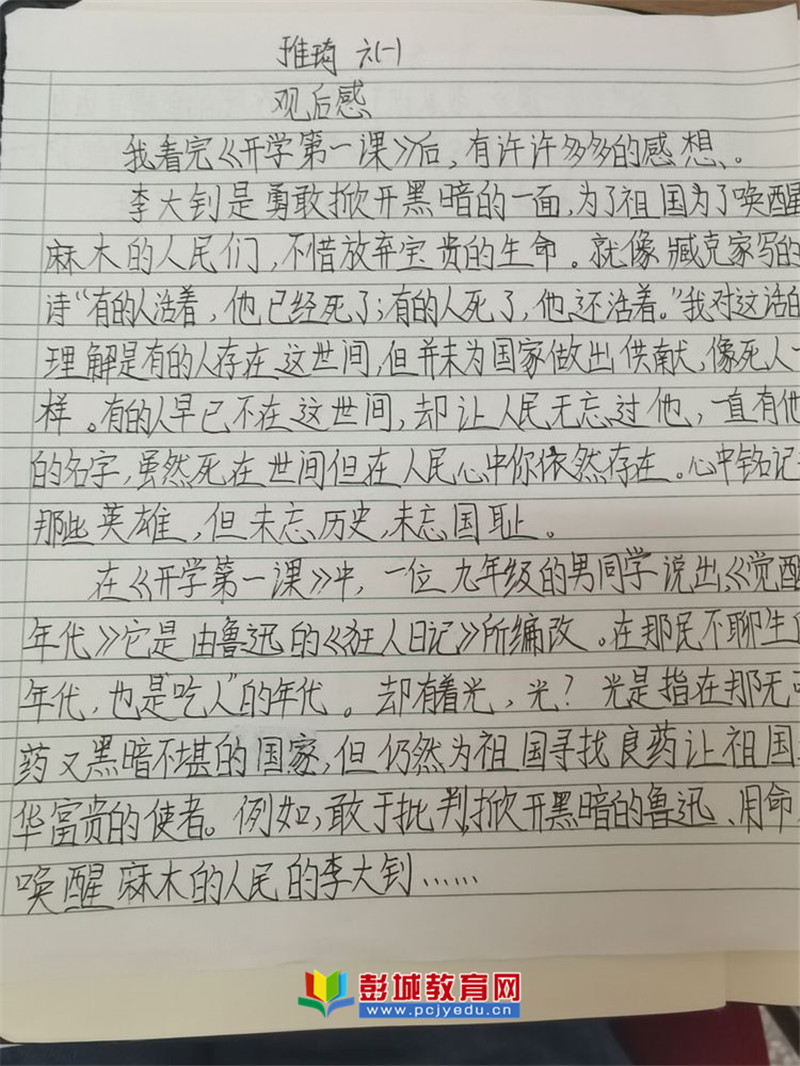 雅琦 六(一)
观后感
我看完《开学第一课》后,有许许多多的感想、。
李大钊是勇敢掀开黑暗的一面,为了祖国为了唤醒
麻木的人民们,不惜放弃宝贵的生命。就像臧克家写的
诗“有的人活着,他已经死了;有的人死了,他还活着。”我对这话的
理解是有的人存在这世间,但并未为国家做出供献,像死人一
样。有的人早已不在这世间,却让人民无忘过他,一直有他
的名字,虽然死在世间但在人民心中你依然存在。心中铭记
那些英雄,但未忘历史,未忘国耻。
在《开学第一课》中,一位九年级的男同学说出《觉醒
年代》它是由鲁迅的《狂人日记》所编改。在那民不聊生
年代,也是“吃人”的年代。却有着光,光?光是指在那无可
药又黑暗不堪的国家,但仍然为祖国寻找良药让祖国
华富贵的使者。例如,敢于批判,掀开黑暗的鲁迅、用命
唤醒麻木的人民的李大钊……
彭城教育网
www.pcjyedu.cn